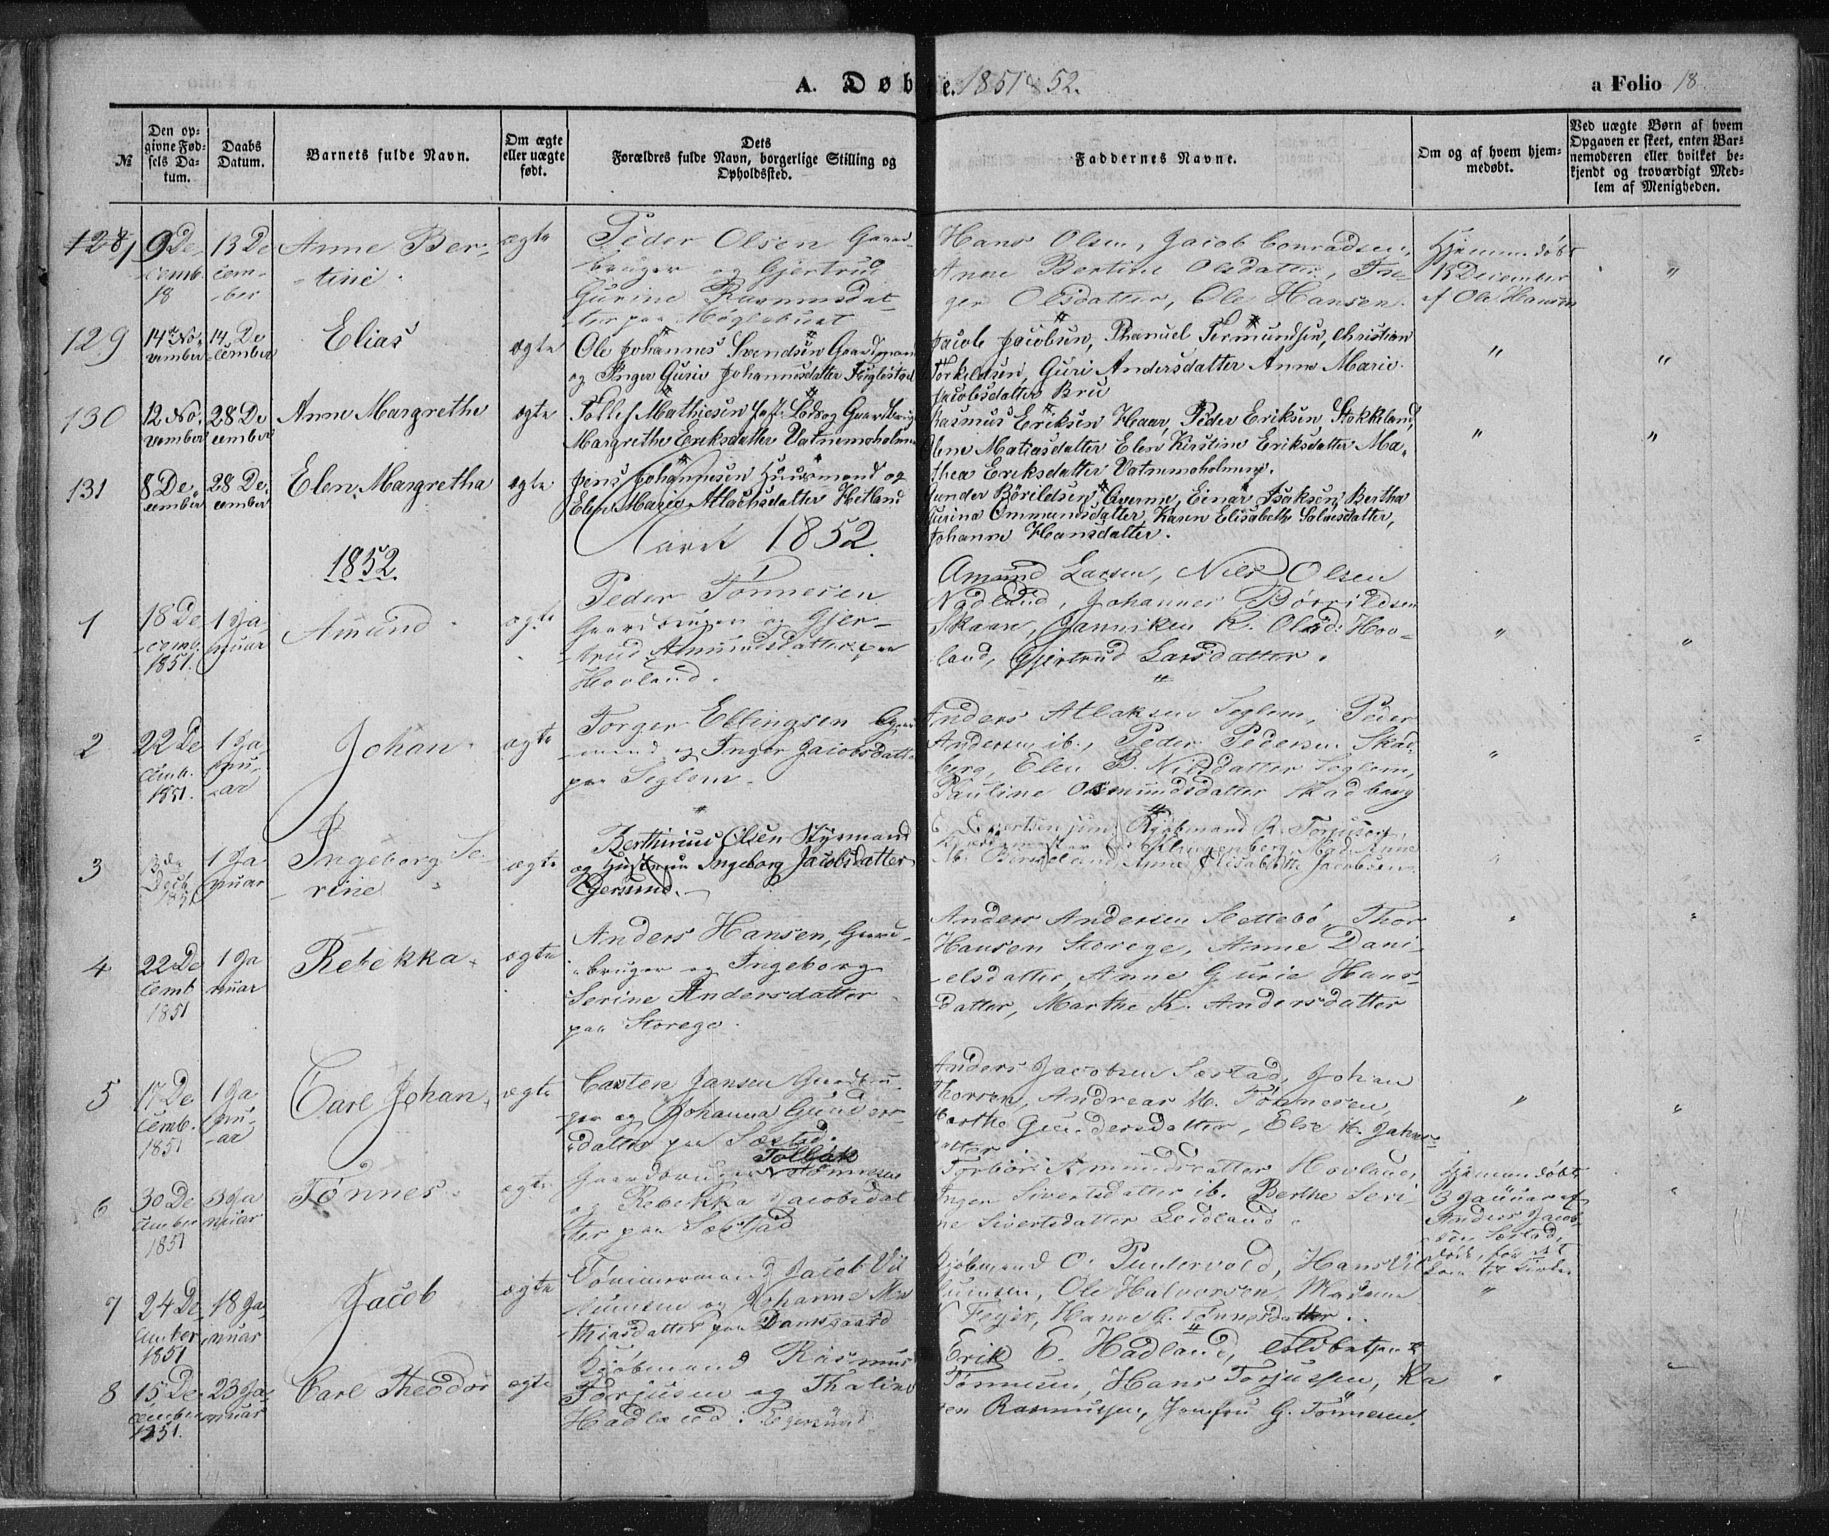 A. Døbte. 1851 & 52.
a Folio 18.
№
Den op-
givne Fød-
sels Da-
tum.
Daabs
Datum.
Barnets fulde Navn.
Om ægte
eller uægte
født.
Dets
Forældres fulde Navn, borgerlige Stilling og
Opholdssted.
Faddernes Navne.
Om og af hvem hjem-
medøbt.
Ved uægte Børn af hvem
Opgaven er skeet, enten Bar-
nemoderen eller hvilket be-
kjendt og troværdigt Med-
lem af Menigheden.
128
9 De
cemb.
13 De
cem-
ber
Anne Ber-
tine
ægte
Peder Olsen Gaard-
bruger og Gjertrud
Gurine Rasmusdat
ter paa
Hans Olsen, Jacob Conradsen,
Anne Bertine Olsdatter, In-
ger Olsdatter, Ole Hansen.
Hjemmedøbt
13 December
af Ole Hansen
"
129
14de No-
vember
14 De
cember
Elias
ægte
Ole Johannes Svendsen Gaardmand
og Inger Gurie Johannesdatter Fuglestad
Jacob Jacobsen, Phanuel Tormundsen, Christian
Torkildsen, Guri Andersdatter Anne Marie
Jacobsdatter Bru
"
"
130
12 No-
vember
28 De
cember
Anne Margrethe
ægte
Tollef Mathiesen Lods og Gaardbruger
Margrethe Eriksdatter Vatnemoholmen
Rasmus Eriksen Haar, Peder Eriksen, Stokkeland,
Mathiasdatter Elen Kirstine Eriksdatter Ma-
thea Eriksdatter Vatnemoholmen.
"
"
131
8 De-
cember
28 De
cember
Elen Margretha
ægte
Jens Johannesen Huusmand og
Elen Marie Atlachsdatter Hetland
Gunder Børildsen, Einar Isaksen, Bertha
Gurina Ommundsdatter, Karen Elisabeth Salvesdatter,
Johanne Hansdatter.
Aaret 1852.
1852
1
18 De
cemb.
1851.
1 Ja
nuar
Amund
ægte
Peder Tønnesen
Gaardbruger og Gjer-
trud Amundsdatter paa
Hovland.
Amund Larsen, Nils Olsen
Nodland, Johannes Børrildsen
Skaan, Janniken K. Olsd: Hov-
land, Gjertrud Larsdatter.
"
"
2
22 De
cemb.
1851.
1 Ja
nu-
ar
Johan
ægte
Torger Ellingsen Gaard
mand og Inger Jacobsdatter
paa Seglem.
Anders Atlaksen Seglem, Peder
Andersen ib., Peder Pedersen Skad-
berg, Elen B. Nilsdatter Seglem,
Pauline Osmundsdatter Skadberg
"
"
3
Decb
1851
1 Ja
nuar
Ingeborg Se-
rine
ægte
Berthinius Olsen Styrmand
og Hustru Ingeborg Jacobsdatter
Egersund.
Evertsen jun. Kjøbmand R. Torjusen,
Klungenberg, Mad. Anne
Anne Elisabeth Jacobsen
"
4
22 De
cemb
1851
1 Ja
nuar
Rebekka
ægte
Anders Hansen, Gaard-
bruger og Ingeborg
Serine Andersdatter
paa Storege.
Anders Andersen Settebø, Thor
Hansen Storege, Anne Dani-
elsdatter, Anne Gurie Hans-
datter, Marthe K. Andersdatter
"
"
5
17 De
cemb.
1851
1 Ja
nu-
ar
Carl Johan
ægte
Casten Jansen Gaardbru-
ger og Johanna Gunders-
datter paa Sæstad.
Anders Jacobsen Sæstad, Johan
Thorsen, Andreas M. Tønnesen,
Marthe Gundersdatter, Else K. Jahns-
datter
"
"
6
30 De
cember
1851
3 Ja
nuar
Tønnes
ægte
Gaardbruger Tollak Tønnesen
og Rebekka Jacobsdat
ter paa Sæstad
Torbøri Amundsdatter Hovland,
Inger Sivertsdatter ib. Berthe Seri
ne Sivertsdatter Leidland.
Hjemmedøbt
3 Januar af
Anders Jacob-
sen Sæstad,
død, før det
kom til Kirke
"
7
24 De
cember
1851
18 Ja
nuar
Jacob
ægte
Tømmermand Jacob Vil
lumsen og Johanne Ma
thiasdatter paa Damsgaard
Kjøbmand O. Puntervold, Hans Vil
lumsen, Ole Halvorsen, Madame
Feyer, Hanne G. Tønnesdatter.
"
8
15 De
cember
1851.
23 Ja
nuar
Carl Theodor
ægte
Kjøbmand Rasmus
Torjusen og Thaline
Hadland i Egersund
Erik E. Hadland,
Tønnesen, Hans Torjussen, Ka
ren Rasmussen, Jomfru G. Tønnesen.
"